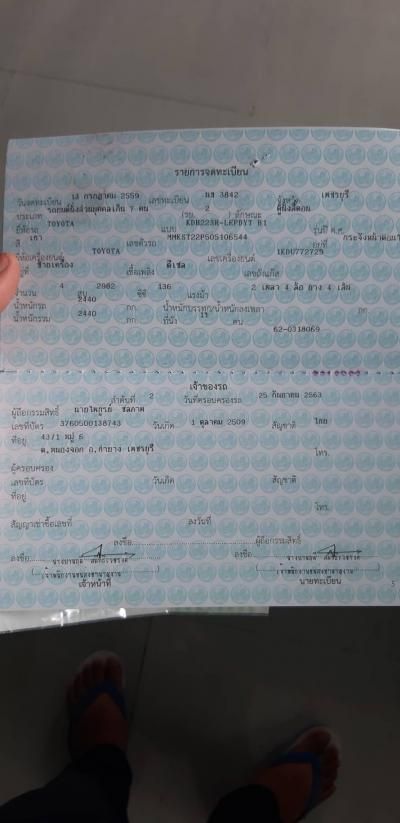 รายการจดทะเบียน
วันจดทะเบียน 13 กรกฎาคม 2559 เลขทะเบียน นข 3842 จังหวัด เพชรบุรี
ประเภท รถยนต์นั่งส่วนบุคคลเกิน 7 คน (รย. 2 ) ลักษณะ ตู้นั่งสี่ตอน
ยี่ห้อรถ TOYOTA แบบ KDH223R-LEPDYT รุ่นปี ค.ศ.
สี เทา เลขตัวรถ อยู่ที่ กระจังหน้าตอนใน
ยี่ห้อเครื่องยนต์ TOYOTA เลขเครื่องยนต์ 1KDU772729
อยู่ที่ ซ้ายเครื่อง เชื้อเพลิง ดีเซล เลขถังแก๊ส
จำนวน 4 สูบ 2982 ซีซี 136 แรงม้า 2 เพลา 4 ล้อ ยาง 4 เส้น
น้ำหนักรถ 2440 กก. น้ำหนักบรรทุก/น้ำหนักลงเพลา กก.
น้ำหนักรวม 2440 กก. ที่นั่ง 11 คน
62-0318069
เจ้าของรถ
ลำดับที่ 2 วันที่ครอบครองรถ 25 กันยายน 2563
ผู้ถือกรรมสิทธิ์ นายไพฑูรย์
เลขที่บัตร 3760500138743 วันเกิด 1 ตุลาคม 2509 สัญชาติ ไทย
ที่อยู่ 43/1 หมู่ 6
ต.หนองจอก อ.ท่ายาง เพชรบุรี โทร.
ผู้ครอบครอง
เลขที่บัตร วันเกิด สัญชาติ
ที่อยู่
โทร.
สัญญาเช่าซื้อเลขที่ ลงวันที่
ลงชื่อ ผู้ถือกรรมสิทธิ์
ลงชื่อ ลงชื่อ
เจ้าหน้าที่ นายทะเบียน
5